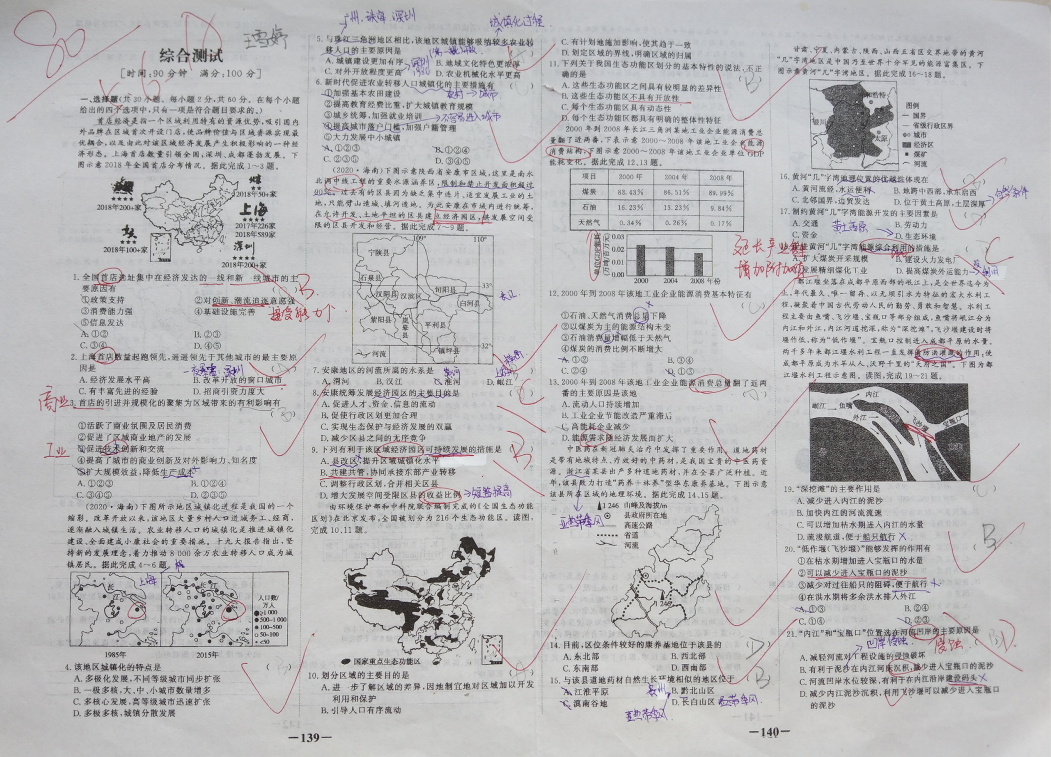 综合测试
[时间:90分钟 满分:100分]
一、选择题(共30小题,每小题2分,共60分。在每个小题
给出的四个选项中,只有一项是符合题目要求的。)
首店经济是指一个区域利用特有的资源优势,吸引国内
外品牌在区域首次开设门店,使品牌价值与区域资源实现最
优耦合,以及由此对该区域经济发展产生积极影响的一种经
济形态。上海首店数量引领全国,深圳、成都蓬勃发展。下
图示意2018年全国首店分布情况。据此完成1~3题。
2018年200+家
2018年50+家
上海
2017年226家
2018年389家
2018年100+家
深圳
2018年200+家
1.全国首店选址集中在经济发达的一线和新一线城市的主
要原因有
①政策支持 ②对创新、潮流追逐意愿强
③消费能力强 ④基础设施完善
⑤信息发达
A.①② B.②③
C.③④ D.④⑤
2.上海首店数量起跑领先,遥遥领先于其他城市的最主要原
因是
A.经济发展水平高 B.改革开放的窗口城市
C.有丰富先进的经验 D.招商引资力度大
3.首店的引进并规模化的聚集为区域带来的有利影响有
①活跃了商业氛围及居民消费
②促进了区域商业地产的发展
③促进技术创新和交流
④提高了城市的商业创新及对外影响力、知名度
⑤扩大规模效益,降低生产成本
A.①②③ B.①②④
C.③④⑤ D.②③⑤
(2020·海南)下图所示地区城镇化进程是我国的一个
缩影。改革开放以来,该地区大量乡村人口进城务工、经商,
逐渐融入城镇生活。农业转移人口的城镇化是推进城镇化
建设、全面建成小康社会的重要举措。十九大报告指出,坚
持新的发展理念,着力推动8000余万农业转移人口成为城
镇居民。据此完成4~6题。
1985年
2015年
人口数/
万人
≥1 000
500~1 000
100~500
50~100
4.该地区城镇化的特点是
A.多极化发展,不同等级城市同步扩张
B.一级多核,大、中、小城市数量增多
C.多核心发展,高等级城市迅速扩张
D.多极多核,城镇分散发展
—139—
广州 珠海 深圳
城镇化过程
5.与珠江三角洲地区相比,该地区城镇能够吸纳较多农业转
移人口的主要原因是
A.城镇建设更加有序
B.地域文化特色更浓厚
C.对外开放程度更高 D.农业机械化水平更高
6.新时代促进农业转移人口城镇化的主要措施有
①加强基本农田建设
②提高教育经费比重,扩大城镇教育规模
③城乡统筹,加强就业培训
④提高城市落户门槛,加强户籍管理
⑤大力发展中小城镇
A.①②③ B.①②④
C.②③⑤ D.③④⑤
(2020·海南)下图示意陕西省安康市区域,这里是南水
北调中线工程的重要水源涵养区,限制和禁止开发面积超过
90%,过去有的区县因为缺乏集中连片、适宜发展工业的土
地,只能劈山造城、填沟造地。为此安康在市域内进行统筹,
在允许开发、土地平坦的区县建立经济园区,供发展空间受
限的区县开发和经营。据此完成7~9题。
109°
110°
宁陕县
石泉县
汉阴县
汉滨区
旬阳县
33°
白河县
紫阳县
岚皋县
平利县
镇坪县
32°
河流
7.安康地区的河流所属的水系是
A.渭河 B.汉江 C.淮河 D.岷江
8.安康统筹发展经济园区的主要目的是
A.促进人才、资金、信息的流动
B.促使行政区划更加合理
C.实现生态保护与经济发展的双赢
D.减少区县之间的无序竞争
9.下列有利于该区域经济园区可持续发展的措施是
A.县改区,提升区域城镇化水平
B.共建共管,协同承接东部产业转移
C.调整行政区划,合并相关区县
D.增大发展空间受限区县的收益比例
由环境保护部和中科院联合编制完成的《全国生态功能
区划》在北京发布,全国被划分为216个生态功能区。读图,
完成10、11题。
国家重点生态功能区
10.划分区域的主要目的是
A.进一步了解区域的差异,因地制宜地对区域加以开发
利用和保护
B.引导人口有序流动
C.有计划地施加影响,使其趋于一致
D.划定区域的界线,明确区域的归属
11.下列关于我国生态功能区划分的基本特性的说法,不正
确的是
A.这些生态功能区之间具有较明显的差异性
B.这些生态功能区不具有开放性
C.每个生态功能区具有动态性
D.每个生态功能区都具有明确的整体性特征
2000年到2008年长江三角洲某地工业企业能源消费总
量翻了近两番,下表示意2000~2008年该地工业企业能源
消费结构,下图示意2000~2008年该地工业企业单位GDP
能耗变化。据此完成12、13题。
项目 2000年 2004年 2008年
煤炭 83.43% 86.51% 89.99%
石油 16.23% 13.23% 9.84%
天然气 0.34% 0.26% 0.17%
0.03
0.02
0.01
0.00
2000 2004 2008 年份
延长产业链
增加附加值
12.2000年到2008年该地工业企业能源消费基本特征有
①石油、天然气消费总量下降
②以煤炭为主的能源结构未变
③石油消费总量增幅低于天然气
④煤炭的消费比例不断增大
A.①② B.③④
C.②④ D.①③
13.2000年到2008年该地工业企业能源消费总量翻了近两
番的主要原因是该地
A.流动人口持续增加
B.工业企业节能改造严重滞后
C.产业多高能耗
D.能源需求随经济发展而扩大
中医药在新冠肺炎治疗中发挥了重要作用。道地药材
是带有地域特点、疗效好的中药材,是我国宝贵的中医药资
源。浙江省某县出产多种道地药材,并在全县广泛种植。近年,
该县致力打造“药养+休养”型华东康养基地。下图示意
该县所享区域的地理环境。据此完成14、15题。
▲1 246 山峰及海拔/m
县政府所在地
高速公路
省道
河流
14.目前,区位条件较好的康养基地位于该县的
A.东北部 B.西北部
C.东南部 D.西南部
15.与该县道地药材自然生长环境相似的地区位于
A.江淮平原 B.黔北山区
C.滇南谷地 D.长白山区
—140—
甘肃、宁夏、内蒙古、陕西、山西五省区交界地带的黄河
“几”字湾地区是中国乃至世界十分罕见的能源富集区。下
图示意黄河“几”字湾地区。据此完成16~18题。
呼和浩特
银川
图例
国界
省级行政区界
城市
经济区
煤矿
河流
16.黄河“几”字湾地理位置的优越性体现在
A.黄河流经,水运便利 B.地跨中西部,承东启西
C.北邻国界,边贸发达 D.位于黄土高原,土层深厚
17.制约黄河“几”字湾能源开发的主要因素是
A.交通 B.劳动力
C.资金 D.生态环境
18.促进黄河“几”字湾能源综合利用的措施是
A.扩大煤炭开采规模 B.建设火力发电厂
C.发展精细煤化工业 D.提高煤炭外运能力
都江堰坐落在成都平原西部的岷江上,是全世界迄今为
止,年代最久、唯一留存、以无坝引水为特征的宏大水利工
程,凝聚着中国古代劳动人民的勤劳、勇敢和智慧。水利工
程主要由鱼嘴、飞沙堰、宝瓶口等部分组成,鱼嘴将岷江分为
内江和外江,内江河道挖深,称为“深挖滩”。飞沙堰建设时将
堰作低,称为“低作堰”。宝瓶口控制进入成都平原的水量。
两千多年来都江堰水利工程一直发挥着防洪灌溉的作用,使
成都平原成为水旱从人、沃野千里的“天府之国”。下图为都
江堰水利工程示意图。读图,完成19~21题。
内江
岷江
鱼嘴
外江
飞沙堰
宝瓶口
19.“深挖滩”的主要作用是
A.减少进入内江的泥沙
B.加快内江的河流流速
C.可以增加枯水期进入内江的水量
D.疏浚航道,便于船只航行
20.“低作堰(飞沙堰)”能够发挥的作用有
①在枯水期增加进入宝瓶口的水量
②可以减少进入宝瓶口的泥沙
③减少对过往船只的阻碍,便于航行
④在洪水期将多余洪水排入外江
A.①③ B.②④
C.③④ D.①②
21.“内江”和“宝瓶口”位置选在河流凹岸的主要原因是
A.减轻河流对工程设施的侵蚀破坏
B.有利于泥沙在内江河床沉积,减少进入宝瓶口的泥沙
C.河流凹岸水位较深,有利于在内江沿岸建设码头
D.减少内江泥沙沉积,利用飞沙堰可以减少进入宝瓶口
的泥沙